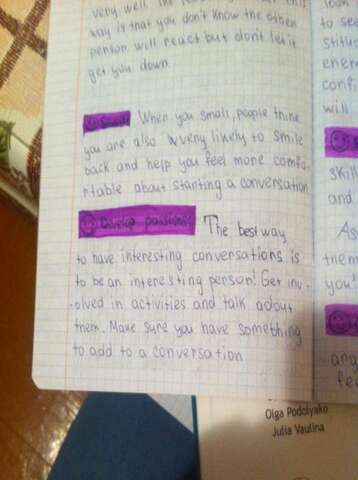 very well. The
way is that you don't know the other
person will react but don't let it
get you down.
Smile
When you small, people think
you are also very likely to smile
back and help you feel more comfo-
rtable about starting a conversation
Develop passions.
The best way
to have interesting conversations is
to be an interesting person! Get inv-
-olved in activities and talk about
them. Make sure you have something
to add to a conversation
to se
stitu
ener
confi
will
skill
and
As
them
you'
any
fe
Olga Podolyako
Julia Vaulina